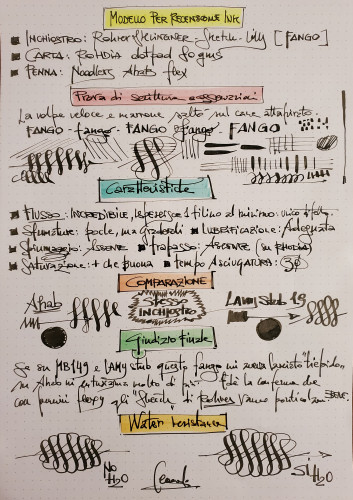 MODELLO PER RECENSIONE INK
INCHIOSTRO: Rohrer & Klingner - Sketch - Lilly [FANGO]
CARTA: RHODIA dotpad 80 gms
PENNA: Noodlers Ahab flex
Prova di scrittura
La volpe veloce e marrone saltò sul cane attappirato.
FANGO - fango - FANGO fango FANGO
Caratteristiche
FLUSSO: INCREDIBILE,
Sfumature: poche, ma Gradevoli LUBRIFICAZIONE: Adeguata
Spiumaggio: ASSENTE Trapasso: ASSENTE (su RHODIA)
Saturazione: + che buona tempo ASCIUGATURA: 30"
COMPARAZIONE
Ahab STESSO INCHIOSTRO LAMY Stub 1.9
Giudizio finale
Se su MB149 e LAMY stub questo fango mi aveva lasciato "tiepido",
su Ahab mi entusiasma molto di più. È la conferma che
con pennini flessy gli "Sketch" di Rohrer vanno particolarm. BENE.
Water resistance
NO H2O SI H2O